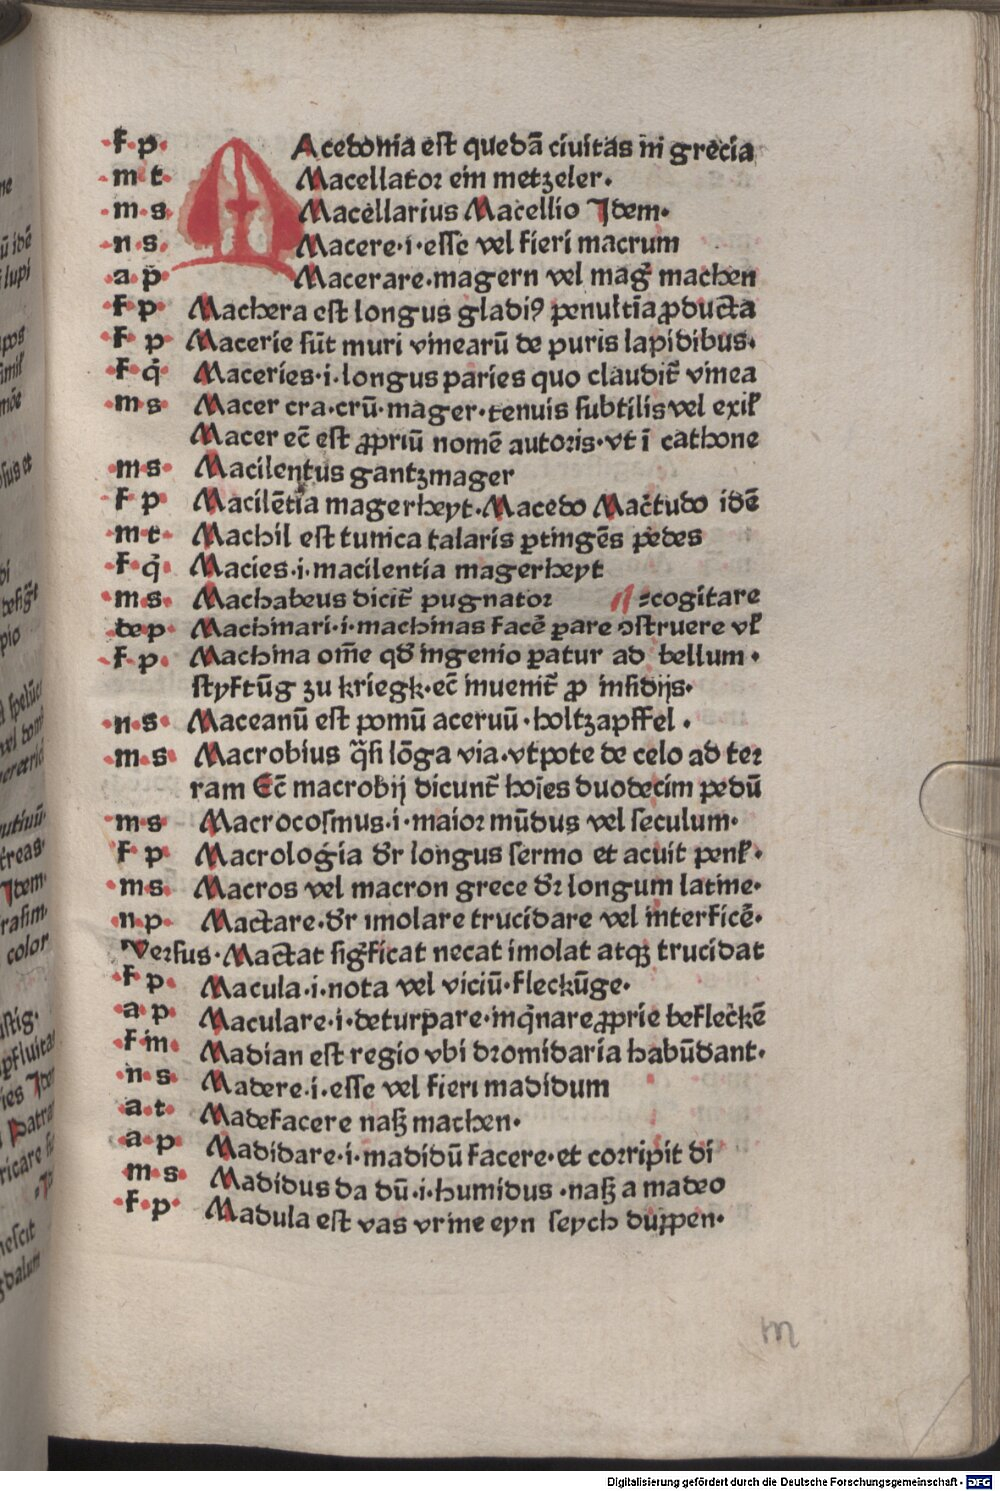 ·f·p· MAcedonia est quedā ciuitas in grecia
·m·t· Macellator ein metzeler·
·m·s· Macellarius Macellio Idem·
·n·s· Macere·i·esse vel fieri macrum
·a·p· Macerare·magern vel mag̃ machen
·f·p· Machera est longus gladi⁹ penultīa ꝓducta
·f·p· Macerie sūt muri vinearū de puris lapidibus·
·f·q̄· Maceries·i·longus paries quo claudit̄ vinea
·m·s· Macer cra·crū·mager·tenuis subtilis vel exil̄
Macer ec̄ est ꝓpriū nomē autoris·vt ī cathone
·m·s· Macilentus gantzmager
·f·p· Macilētia magerheyt·Macedo Mac̄tudo idē
·m·t· Machil est tunica talaris ꝑtingēs pedes
·f·q̄· Macies·i·macilentia magerheyt
·m·s· Machabeus dicit̄ pugnator =cogitare
·de p· Machinari·i·machinas facē ꝑare ↄstruere vl̄
·f·p· Machina om̄e qd̄ ingenio ꝑatur ad bellum·
styftūg zu kriegk·ec̄ inuenit̄ ꝓ insidijs·
·n·s· Maceanū est pomū aceruū·holtzapffel·
·m·s· Macrobius q̄si lōga via·vtpote de celo ad ter
ram Ec̄ macrobij dicunt̄ hoīes duodecim pedū
·m·s· Macrocosmus·i·maior mūdus vel seculum·
·f·p· Macrologia dr̄ longus sermo et acuit penl̄·
·m·s· Macros vel macron grece dr̄ longum latine·
·n·p· Mactare·dr̄ imolare trucidare vel interficē·
Versus·Mactat sig̃ficat necat imolat atqꝫ trucidat
·f·p· Macula·i·nota vel viciū·fleckūge·
·a·p· Maculare·i·deturpare·inq̄nare ꝓprie beflec̄kē
·f·m· Madian est regio vbi dromidaria habūdant·
·n·s· Madere·i·esse vel fieri madidum
·a·t· Madefacere naß machen·
·a·p· Madidare·i·madidū facere·et corripit di
·m·s· Madidus da dū·i·humidus·naß a madeo
·f·p· Madula est vas vrine eyn seych duppen·
m
Digitalisierung gefördert durch die Deutsche Forschungsgemeinschaft - DFG